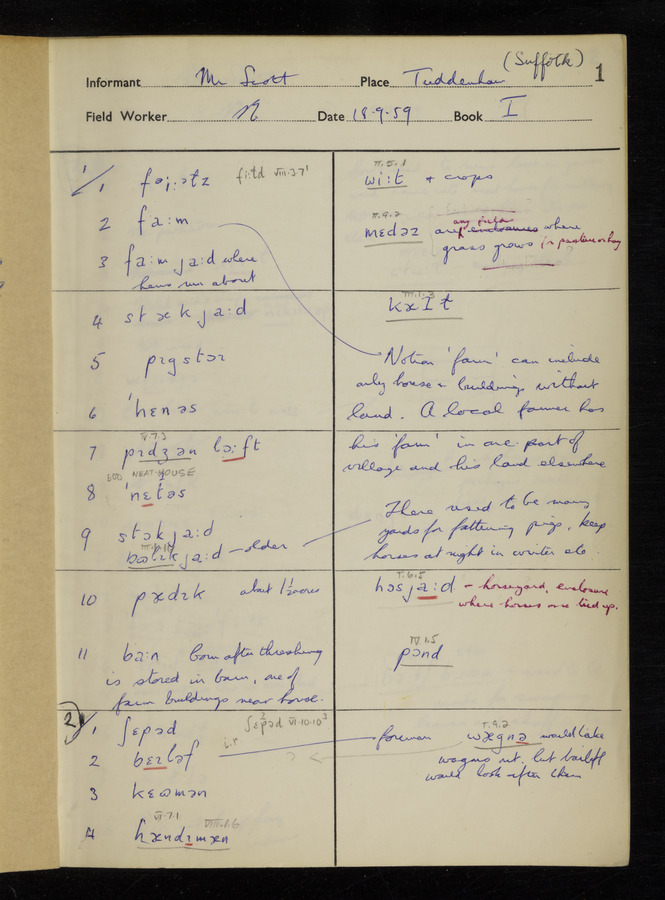 (Suffolk)
1
Informant Mr Scott Place Tuddenham
Field Worker Date 18.9.59 Book I
1/ 1
fi:ld VIII.3.7
2 fa:m
3 fa:m ja:d where
hens run about
4 stækja:d
5 pɪgstəɪ
6 'hɛnəs
V.7.3
7 pɪdʒən lɔ:ft
NEAT-HOUSE
8 'nɛtəs
9 stɔkja:d
ja:d – older
10 pædɪk about 1½ acres
11 ba:n Corn after threshing
is stored in barn, one of
farm buildings near house.
2/ 1 ʃɛpəd ʃɛpəd VI.10.10
2 bɛɪləf
3 kɛωmən
VI.7.1 VIII.1.6
4 hændɪmæn
II.5.1
wi:t + crops
II.9.2
any pasture
mɛdəz any enclosures where
grass grows (i.e. pasture or hay
III.1.3
kæɪt
Notion 'farm' can include
only house & buildings without
land. A local farmer has
his 'farm' in one part of
village and his land elsewhere
There used to be many
yards for fattening pigs, keep
horses at night in winter etc.
I.6.5
hɔsja:d – horseyard, enclosure
where horses are tied up.
IV.1.5
pɔnd
I.9.2
foreman wægnə would take
wagons out. but bailiff
would look after them